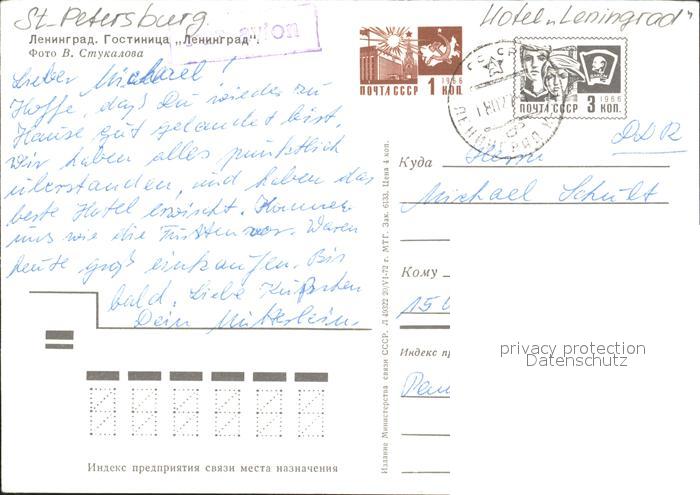 St. Petersburg
Hotel „Leningrad"
Ленинград. Гостиница „Ленинград".
Фото В. Стукалова
avion
Lieber Michael!
Hoffe, daß Du wieder zu
Hause gut gelandet bist.
Wir haben alles pünktlich
überstanden, und haben das
beste Hotel erwischt. Kommen
uns wie die Fürsten vor. Waren
heute groß einkaufen. Bis
bald. Liebe Küßchen
Dein Mütterlein.
ПОЧТА СССР 1 КОП.
1966
ПОЧТА СССР 3 КОП.
1966
СССР
ЛЕНИНГРАД
DDR
Куда
Herrn
Michael Schult
Кому
Индекс
privacy protection
Datenschutz
Издание Министерства связи СССР. Л 49322 20/VI-72 г. МТГ. Зак. 6133. Цена 4 коп.
Индекс предприятия связи места назначения